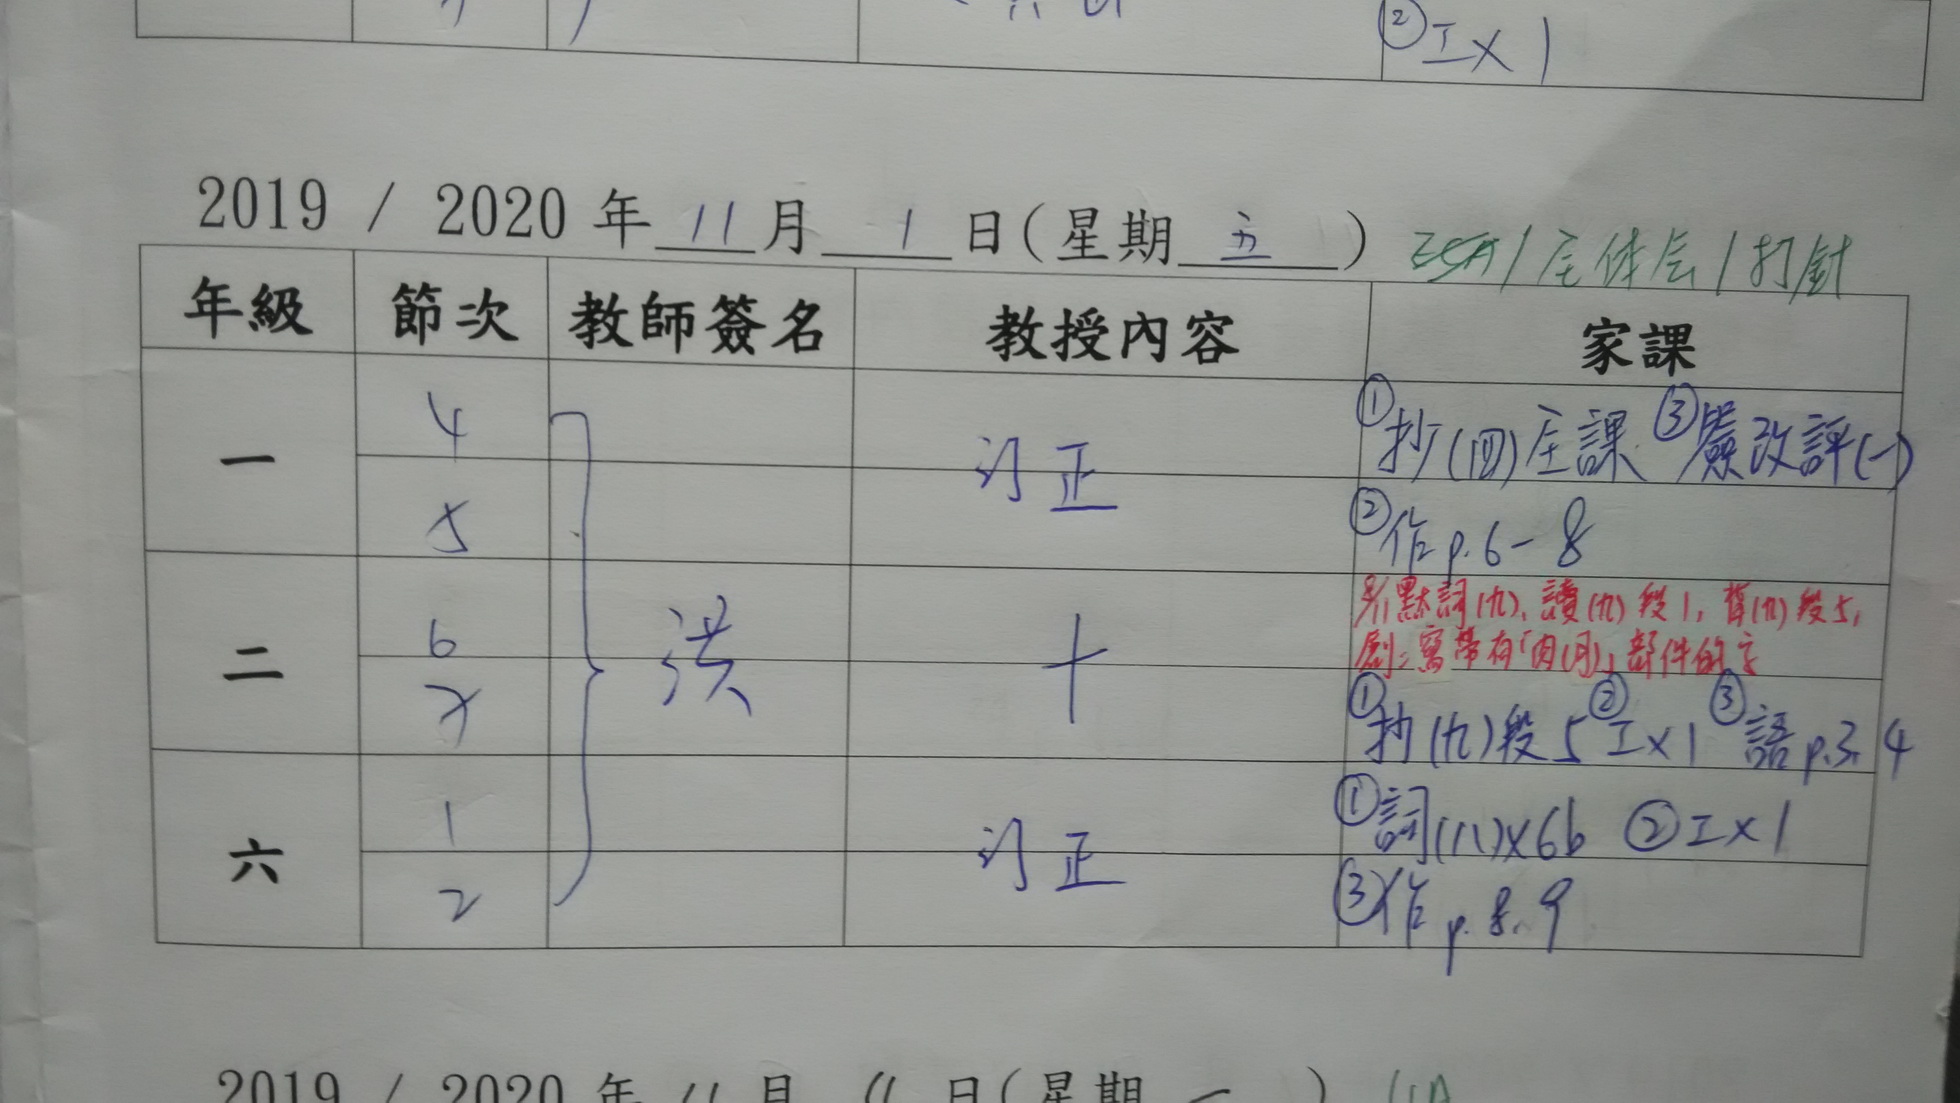 ②工×1
2019 / 2020 年 11 月 1 日(星期 五 )
/打針
年級 節次 教師簽名 教授內容 家課
一 4 訂正 ①抄(四)左課 ③ 改評(一)
5 ②作p.6-8
二 6 洪 十 8/1默詞(九)、讀(九)段1, 背(九)段5,
寫帶有「肉(月)」部件的字
7 ①抄(九)段5 ②工×1 ③語p.3,4
六 1 訂正 ①詞(八)×6b ②工×1
2 ③作p.8,9
2019 / 2020 年 11 月 日(星期 一 )